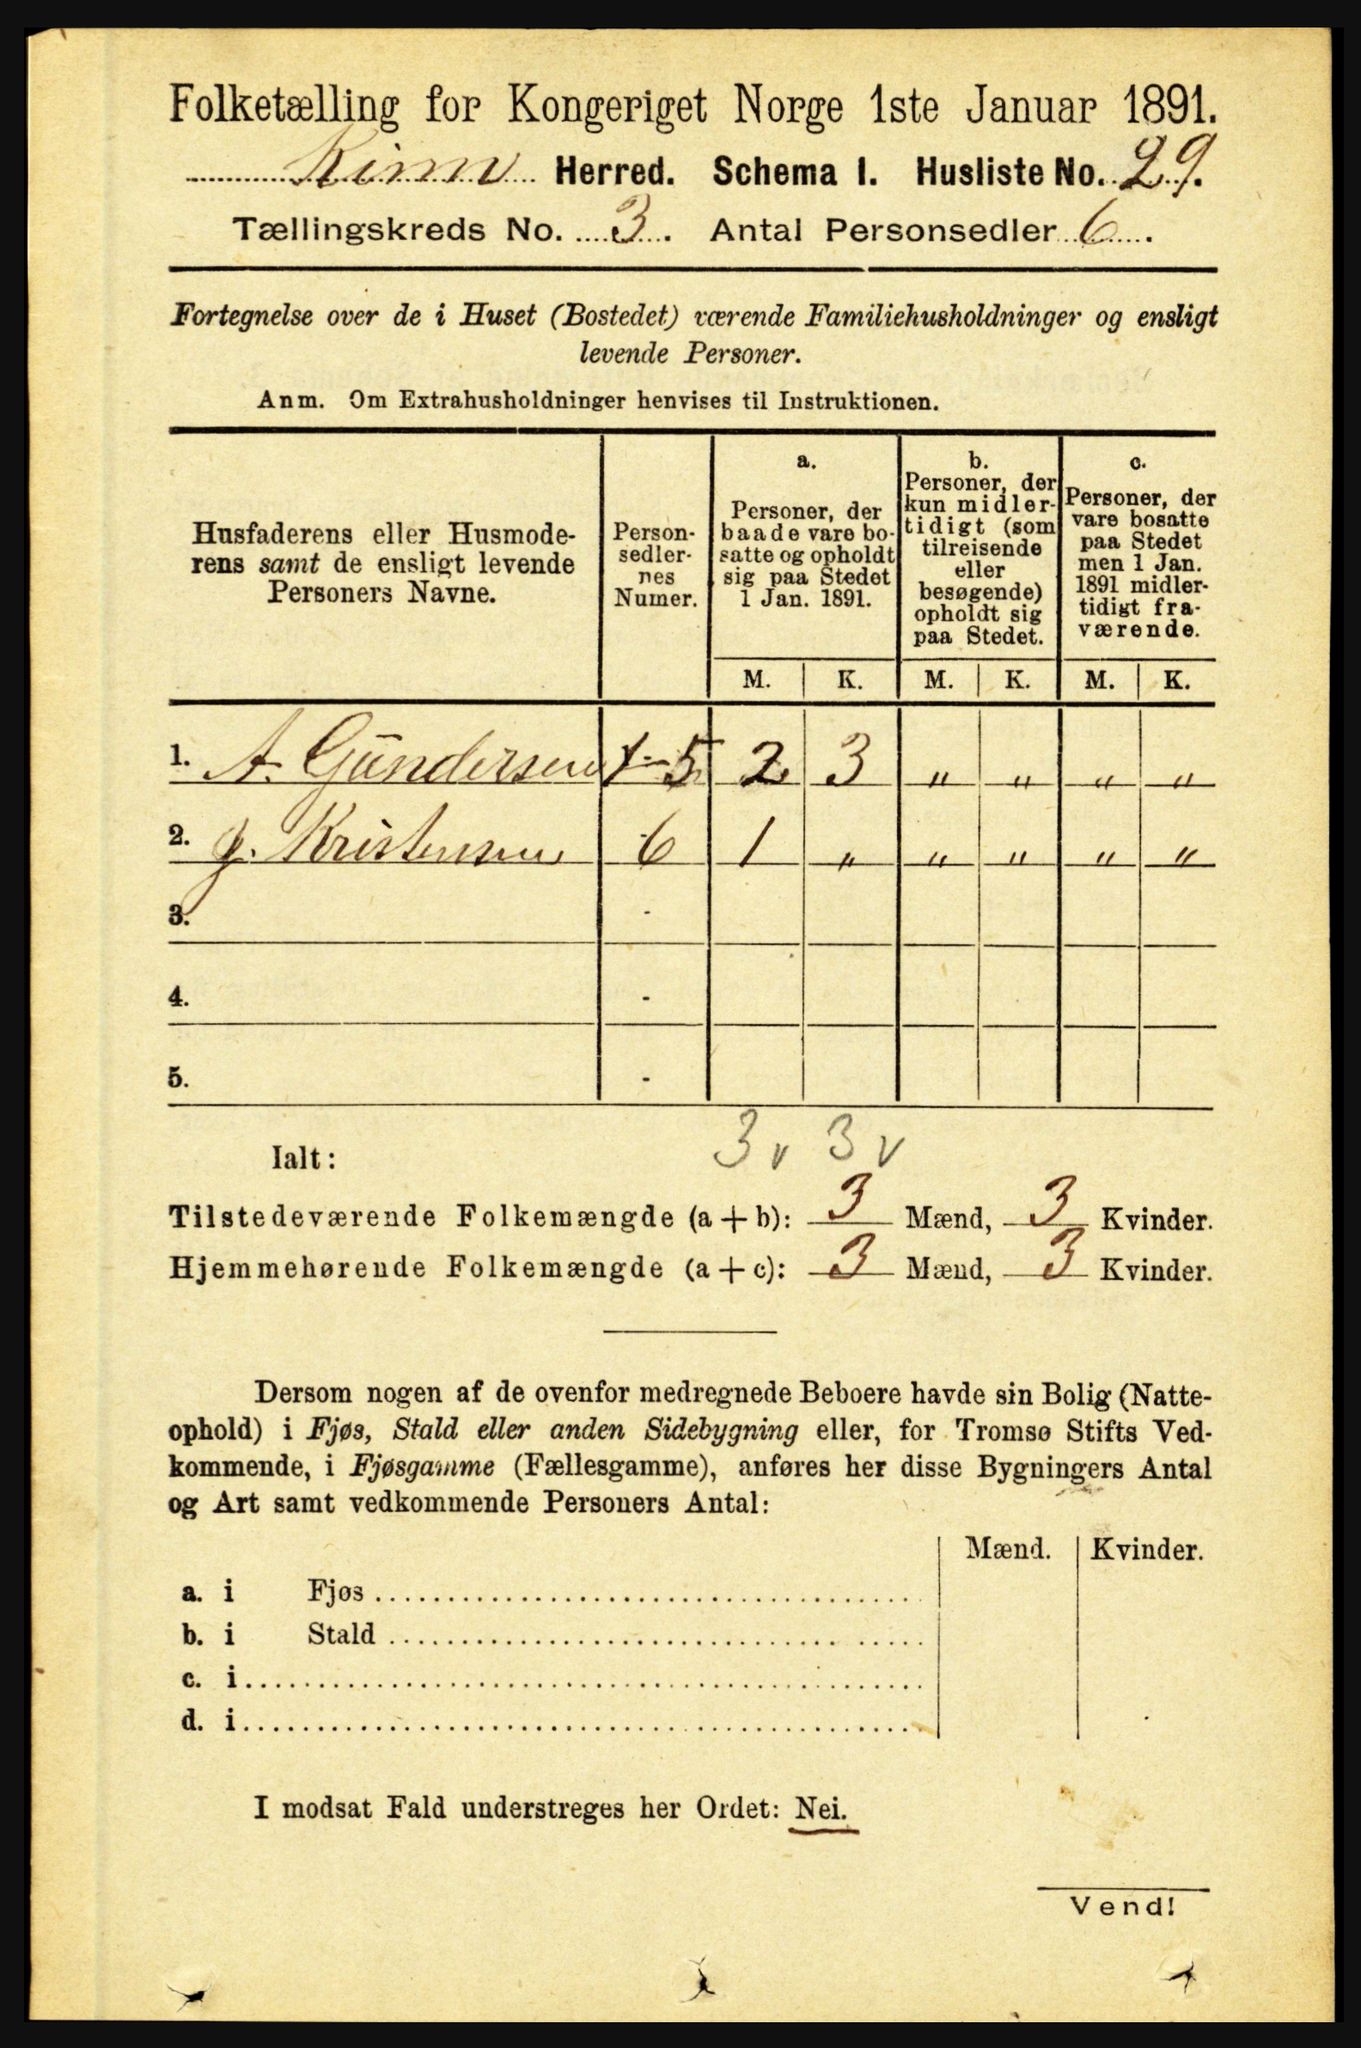 Folketælling for Kongeriget Norge 1ste Januar 1891.
Kinn Herred. Schema I. Husliste No. 29.
Tællingskreds No. 3. Antal Personsedler 6.
Fortegnelse over de i Huset (Bostedet) værende Familiehusholdninger og ensligt
levende Personer.
Anm. Om Extrahusholdninger henvises til Instruktionen.
Husfaderens eller Husmode-
rens samt de ensligt levende
Personers Navne.
Person-
sedler-
nes
Numer.
a.
Personer, der
baade vare bo-
satte og opholdt
sig paa Stedet
1 Jan. 1891.
b.
Personer, der
kun midler-
tidigt (som
tilreisende
eller
besøgende)
opholdt sig
paa Stedet.
c.
Personer, der
vare bosatte
paa Stedet
men 1 Jan.
1891 midler-
tidigt fra-
værende.
M. K. M. K. M. K.
1. A. Gundersen 1-5 2 3 „ „ „ „
2. J. Kristensen 6 1 „ „ „ „ „
3. -
4. -
5. -
3 v 3 v
Ialt:
Tilstedeværende Folkemængde (a + b): 3 Mænd, 3 Kvinder.
Hjemmehørende Folkemængde (a + c): 3 Mænd, 3 Kvinder.
Dersom nogen af de ovenfor medregnede Beboere havde sin Bolig (Natte-
ophold) i Fjøs, Stald eller anden Sidebygning eller, for Tromsø Stifts Ved-
kommende, i Fjøsgamme (Fællesgamme), anføres her disse Bygningers Antal
og Art samt vedkommende Personers Antal:
Mænd. Kvinder.
a. i Fjøs
b. i Stald
c. i
d. i
I modsat Fald understreges her Ordet: Nei.
Vend!